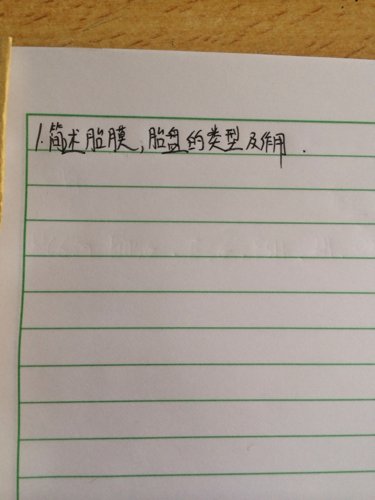 1.简述胎膜,胎盘的类型及作用.